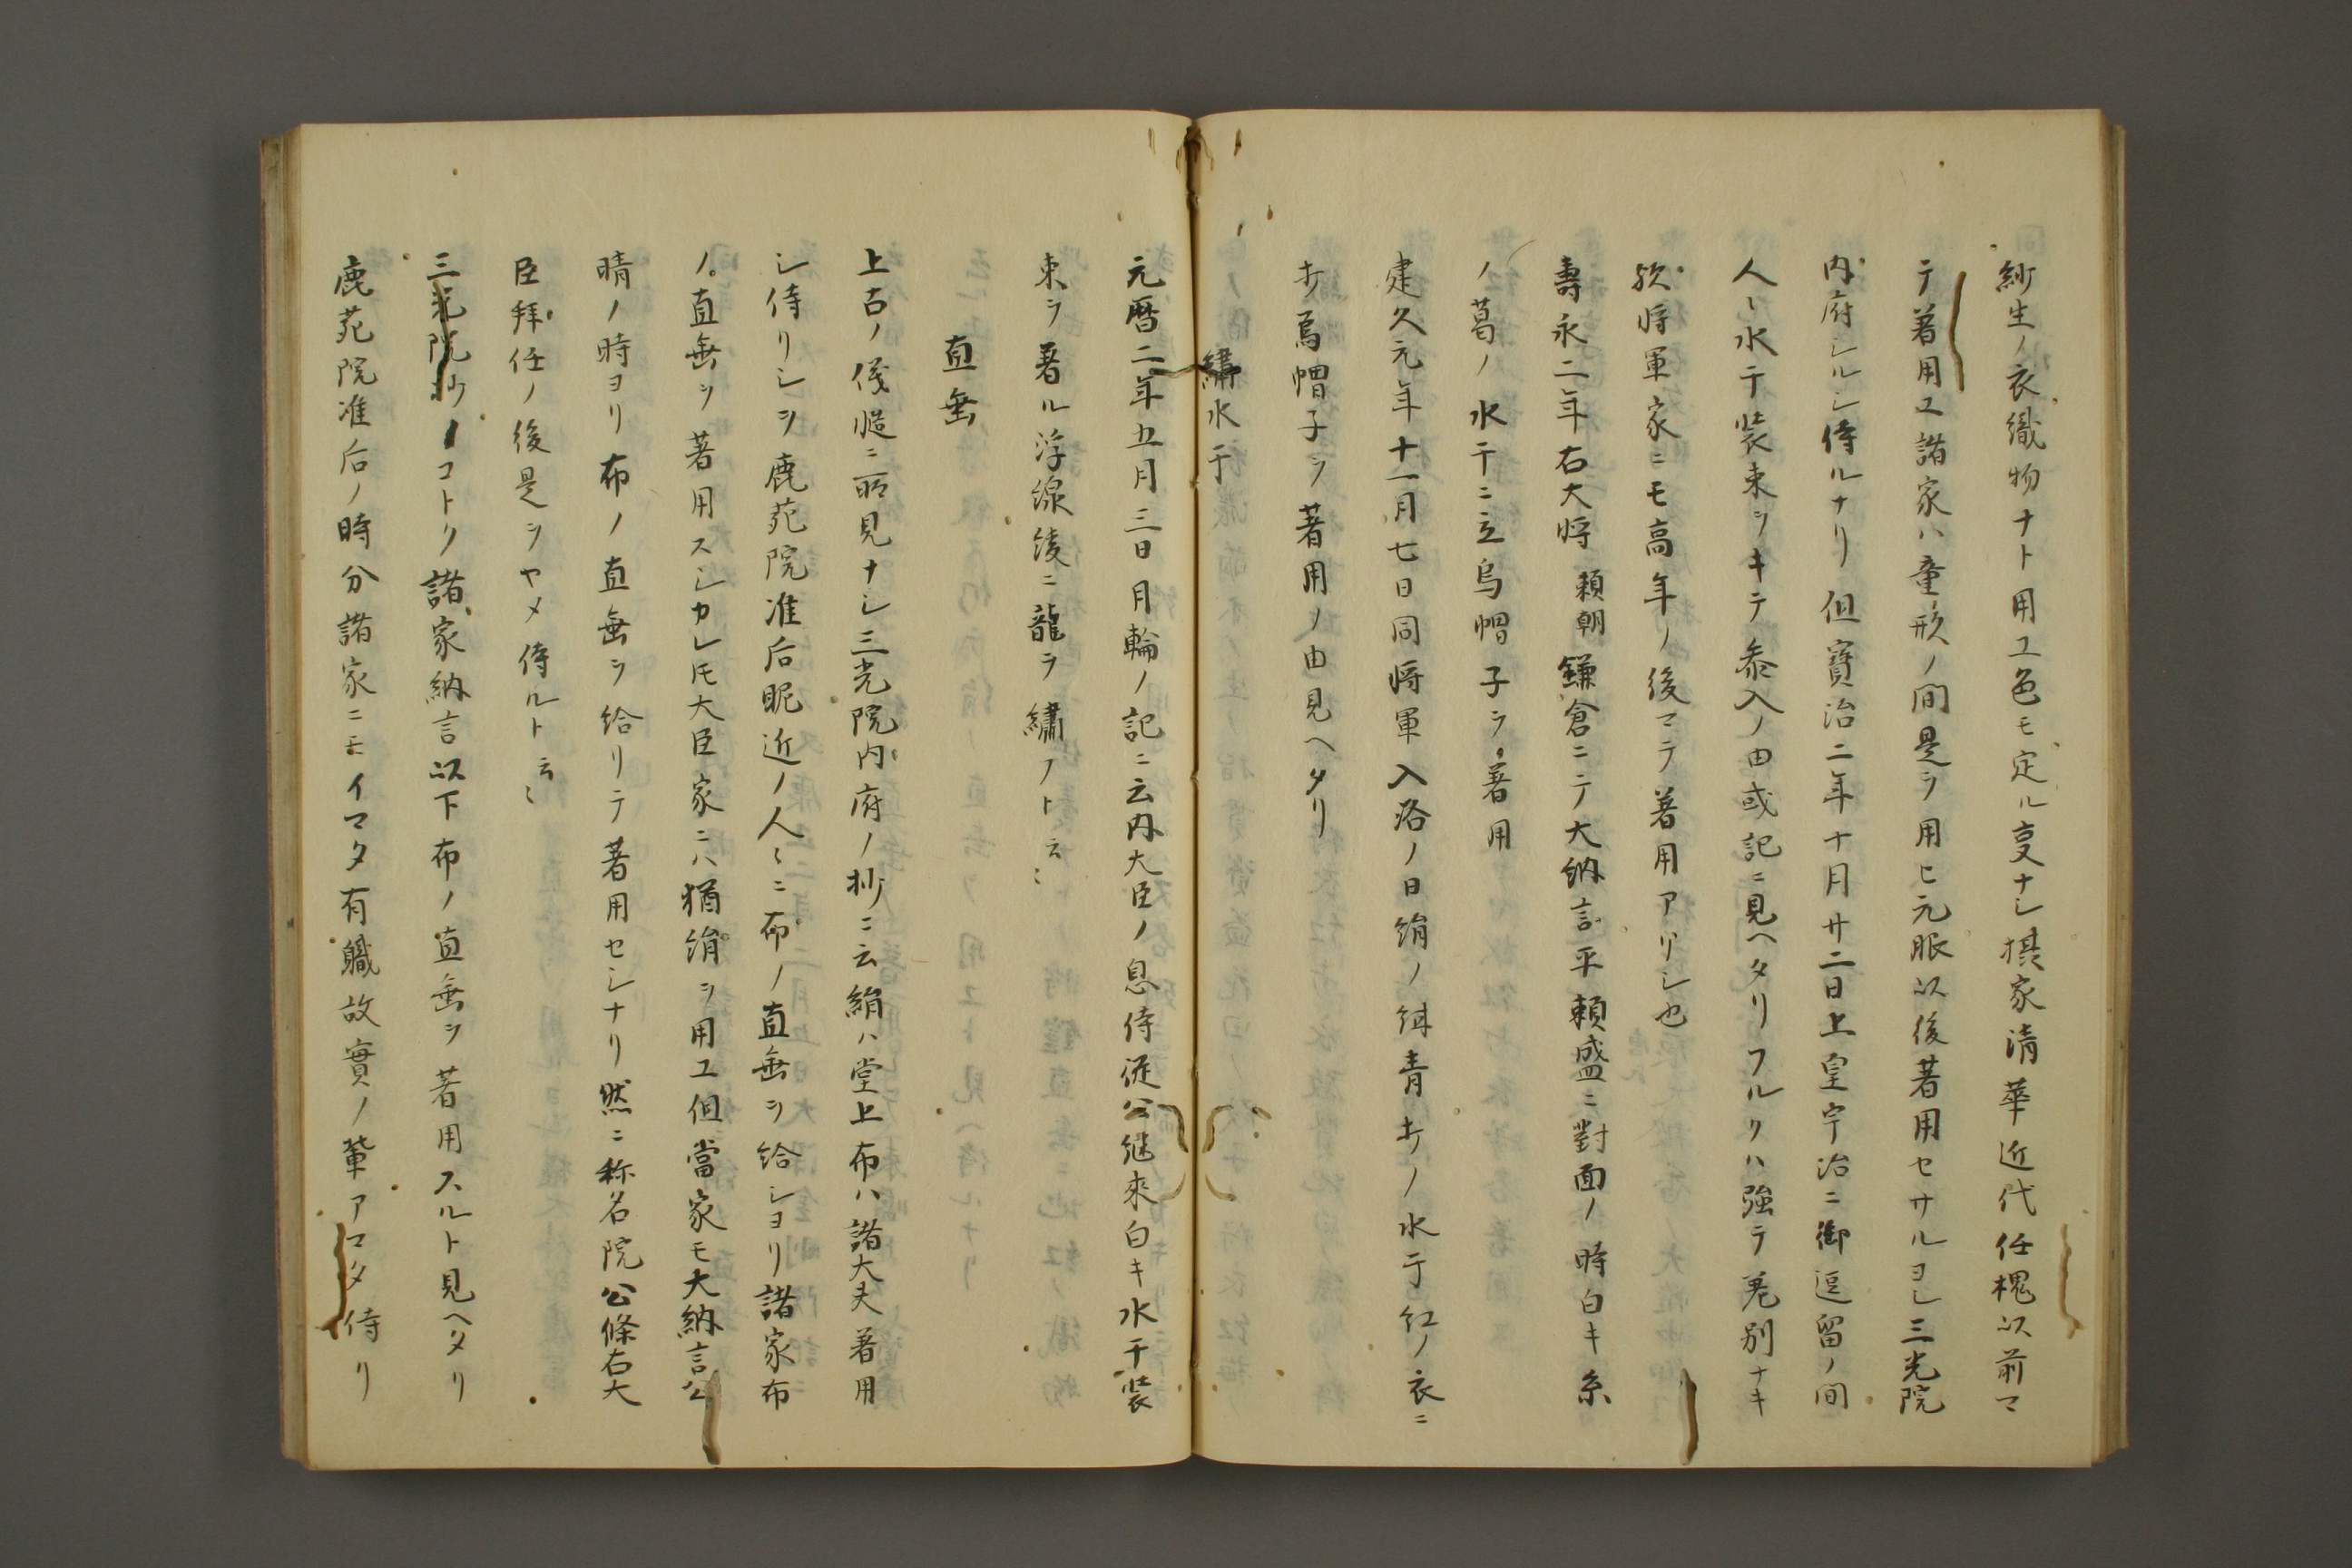 紗生ノ衣織物ナト用ユ色モ定ル支ナシ摂家清華近代任槐以前マ
テ著用ユ諸家ハ童形ノ間是ヲ用ヒ元服以後著用セサルヨシ三光院
内府シルシ侍ルナリ但寶治二年十月廿二日上皇宇治ニ御逗留ノ間
人〻水干装束ヲキテ参入ノ由或記ニ見ヘタリフルクハ強テ差別ナキ
歟将軍家ニモ高年ノ後マテ著用アリシ也
壽永二年右大将頼朝鎌倉ニテ大納言平頼盛ニ對面ノ時白キ糸
ノ葛ノ水干ニ立烏帽子ヲ著用
建久元年十一月七日同将軍入洛ノ日絹ノ紺青キノ水干紅ノ衣ニ
折烏帽子ヲ著用ノ由見ヘタリ
繡水干
元暦二年五月三日月輪ノ記ニ云内大臣ノ息侍従公継来白キ水干装
束ヲ著ル浮線綾ニ龍ヲ繡フト云〻
直垂
上古ノ儀慥ニ所見ナシ三光院内府ノ抄ニ云絹ハ堂上布ハ諸大夫著用
シ侍リシヲ鹿苑院准后昵近ノ人〻ニ布ノ直垂ヲ給シヨリ諸家布
ノ直垂ヲ著用スシカレ𪜈大臣家ニハ猶絹ヲ用ユ但當家モ大納言公
晴ノ時ヨリ布ノ直垂ヲ給リテ著用セシナリ然ニ称名院公條右大
臣拜任ノ後是ヲヤメ侍ルト云〻
三光院抄ノコトク諸家納言以下布ノ直垂ヲ著用スルト見ヘタリ
鹿苑院准后ノ時分諸家ニモイマタ有職故實ノ輩アマタ侍リ